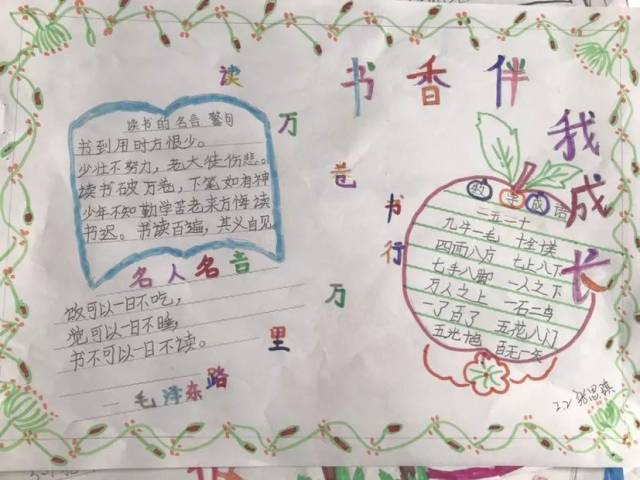 书香伴我成长
读万卷书行万里路
读书的名言 警句
书到用时方恨少。
少壮不努力，老大徒伤悲。
读书破万卷，下笔如有神
少年不知勤学苦老来方悔读
书迟。书读百遍，其义自见
名人名言
饭可以一日不吃，
觉可以一日不睡，
书不可以一日不读。
— 毛泽东
数字成语
二五一十
九牛一毛 十全十美
四面八方 七上八下
七手八脚 一人之下
万人之上 一石二鸟
一了百了 五花八门
五光十色 百无一
2.2 张思